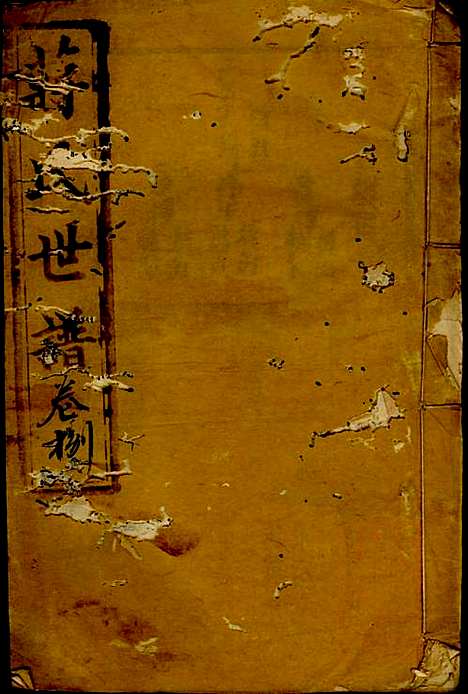 蔣氏世譜卷捌